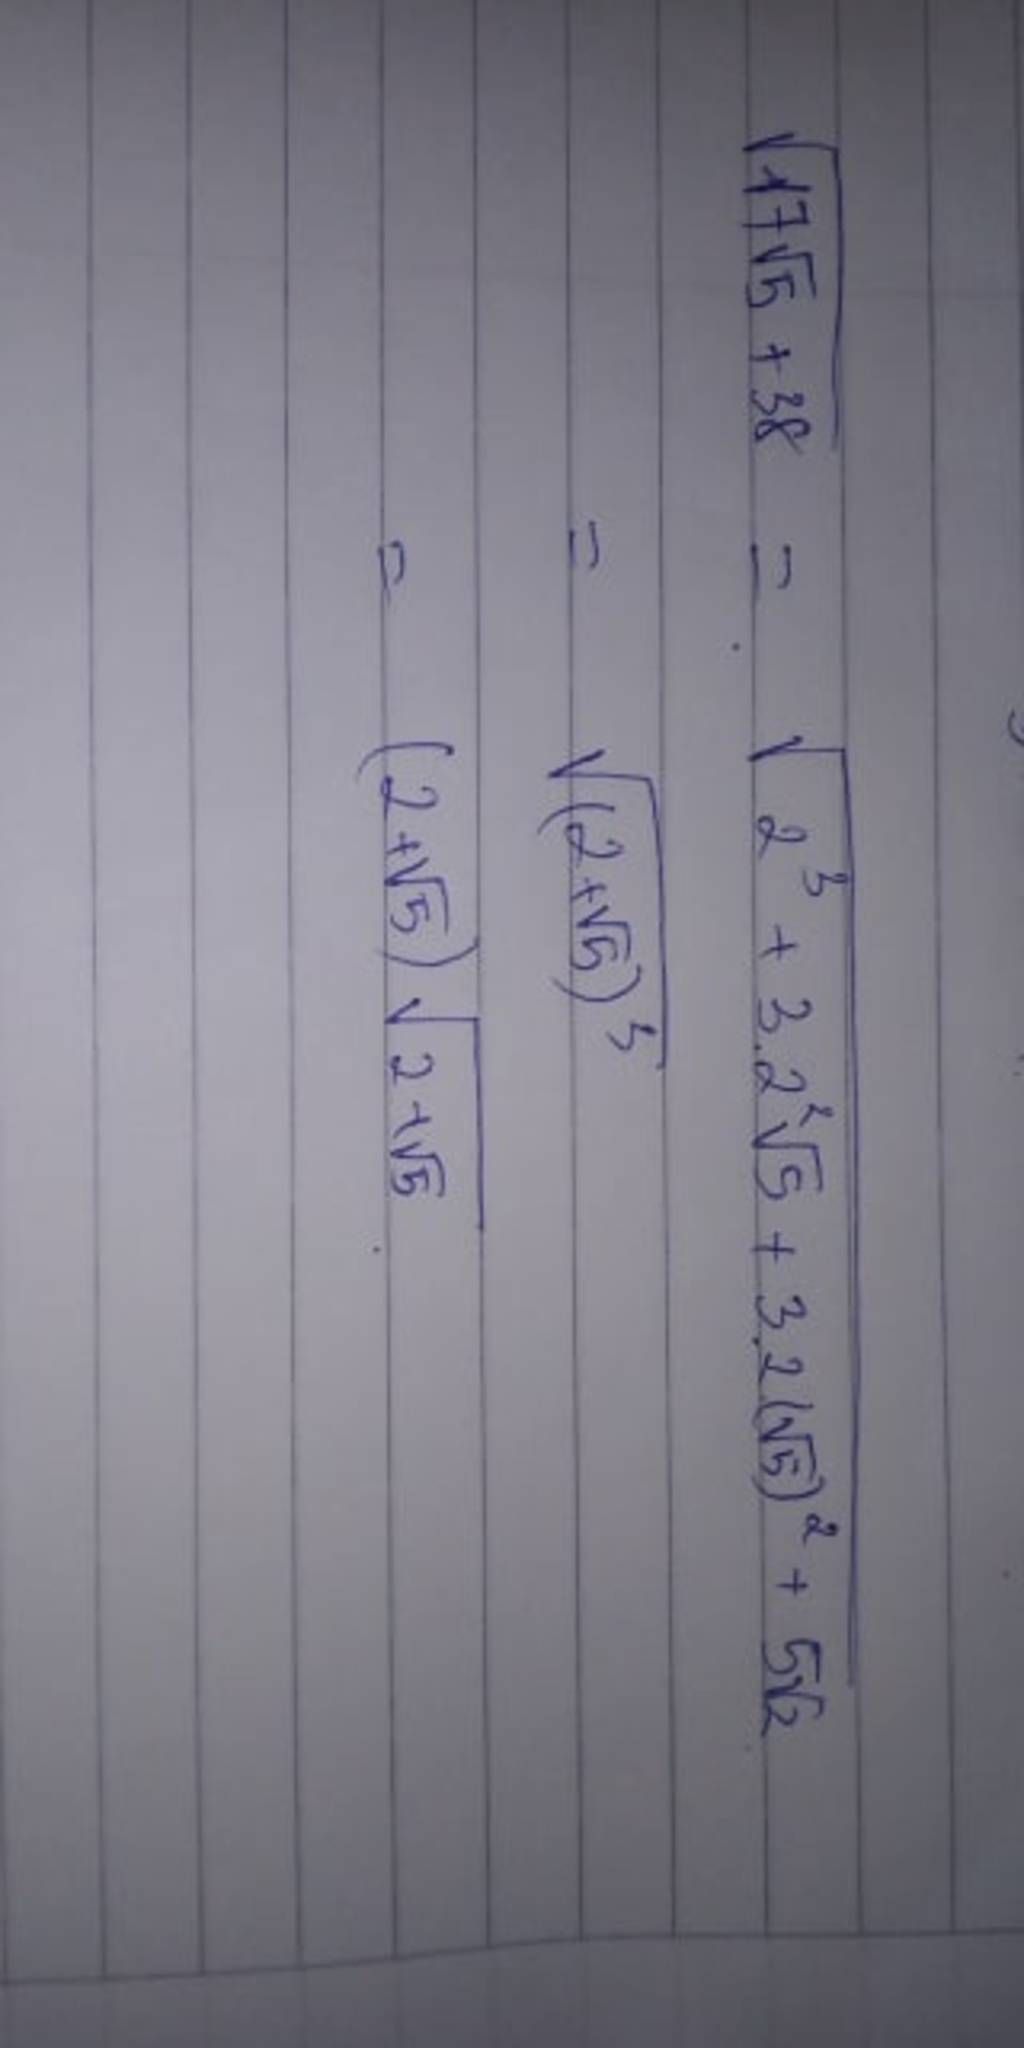 √(17√5 + 38) = √(2³ + 3.2²√5 + 3.2(√5)² + 5√2)
= √((2+√5)³)
= (2+√5)√(2+√5)